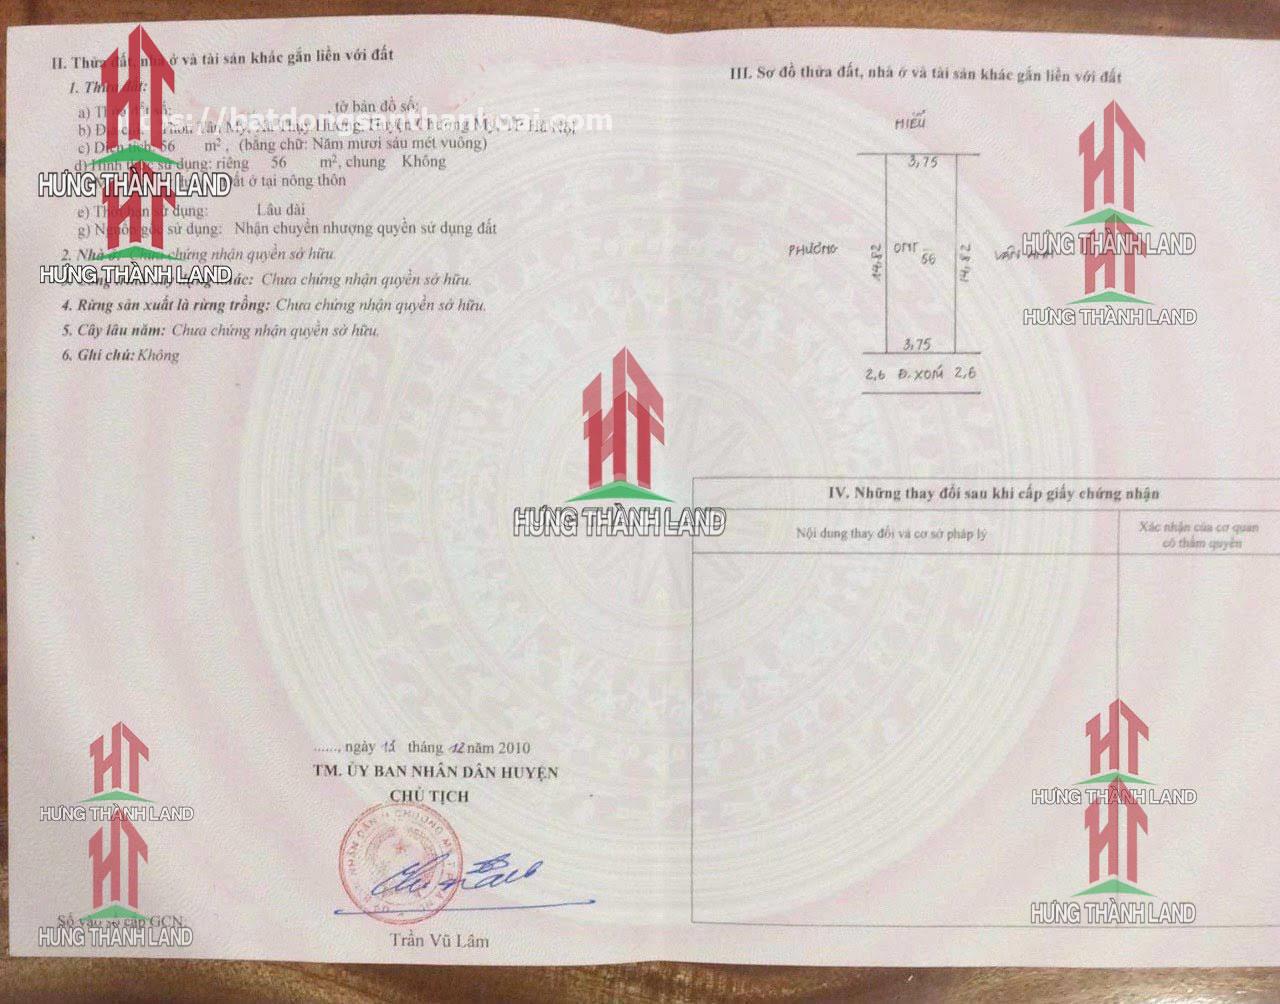 II. Thửa đất, nhà ở và tài sản khác gắn liền với đất
1. Thửa đất:
a) Thửa đất số: , tờ bản đồ số:
b) Địa chỉ: Thôn Tân Mỹ, Xã Thụy Hương, Huyện Chương Mỹ, TP Hà Nội
https://batdongsanthanhoai.com
c) Diện tích: 56 m², (bằng chữ: Năm mươi sáu mét vuông)
d) Hình thức sử dụng: riêng 56 m², chung Không
đất ở tại nông thôn
e) Thời hạn sử dụng: Lâu dài
g) Nguồn gốc sử dụng: Nhận chuyển nhượng quyền sử dụng đất
2. Nhà ở: Chưa chứng nhận quyền sở hữu.
khác: Chưa chứng nhận quyền sở hữu.
4. Rừng sản xuất là rừng trồng: Chưa chứng nhận quyền sở hữu.
5. Cây lâu năm: Chưa chứng nhận quyền sở hữu.
6. Ghi chú: Không
HƯNG THÀNH LAND
HƯNG THÀNH LAND
......, ngày 15 tháng 12 năm 2010
TM. ỦY BAN NHÂN DÂN HUYỆN
CHỦ TỊCH
Trần Vũ Lâm
Số vào sổ cấp GCN:
HƯNG THÀNH LAND
HƯNG THÀNH LAND
HƯNG THÀNH LAND
III. Sơ đồ thửa đất, nhà ở và tài sản khác gắn liền với đất
HIẾU
3,75
PHƯƠNG
14,82
ONT
56
14,82
VÂN
3,75
2,6 Đ. XÓM 2,6
HƯNG THÀNH LAND
HƯNG THÀNH LAND
IV. Những thay đổi sau khi cấp giấy chứng nhận
Nội dung thay đổi và cơ sở pháp lý
Xác nhận của cơ quan
có thẩm quyền
HƯNG THÀNH LAND
HƯNG THÀNH LAND